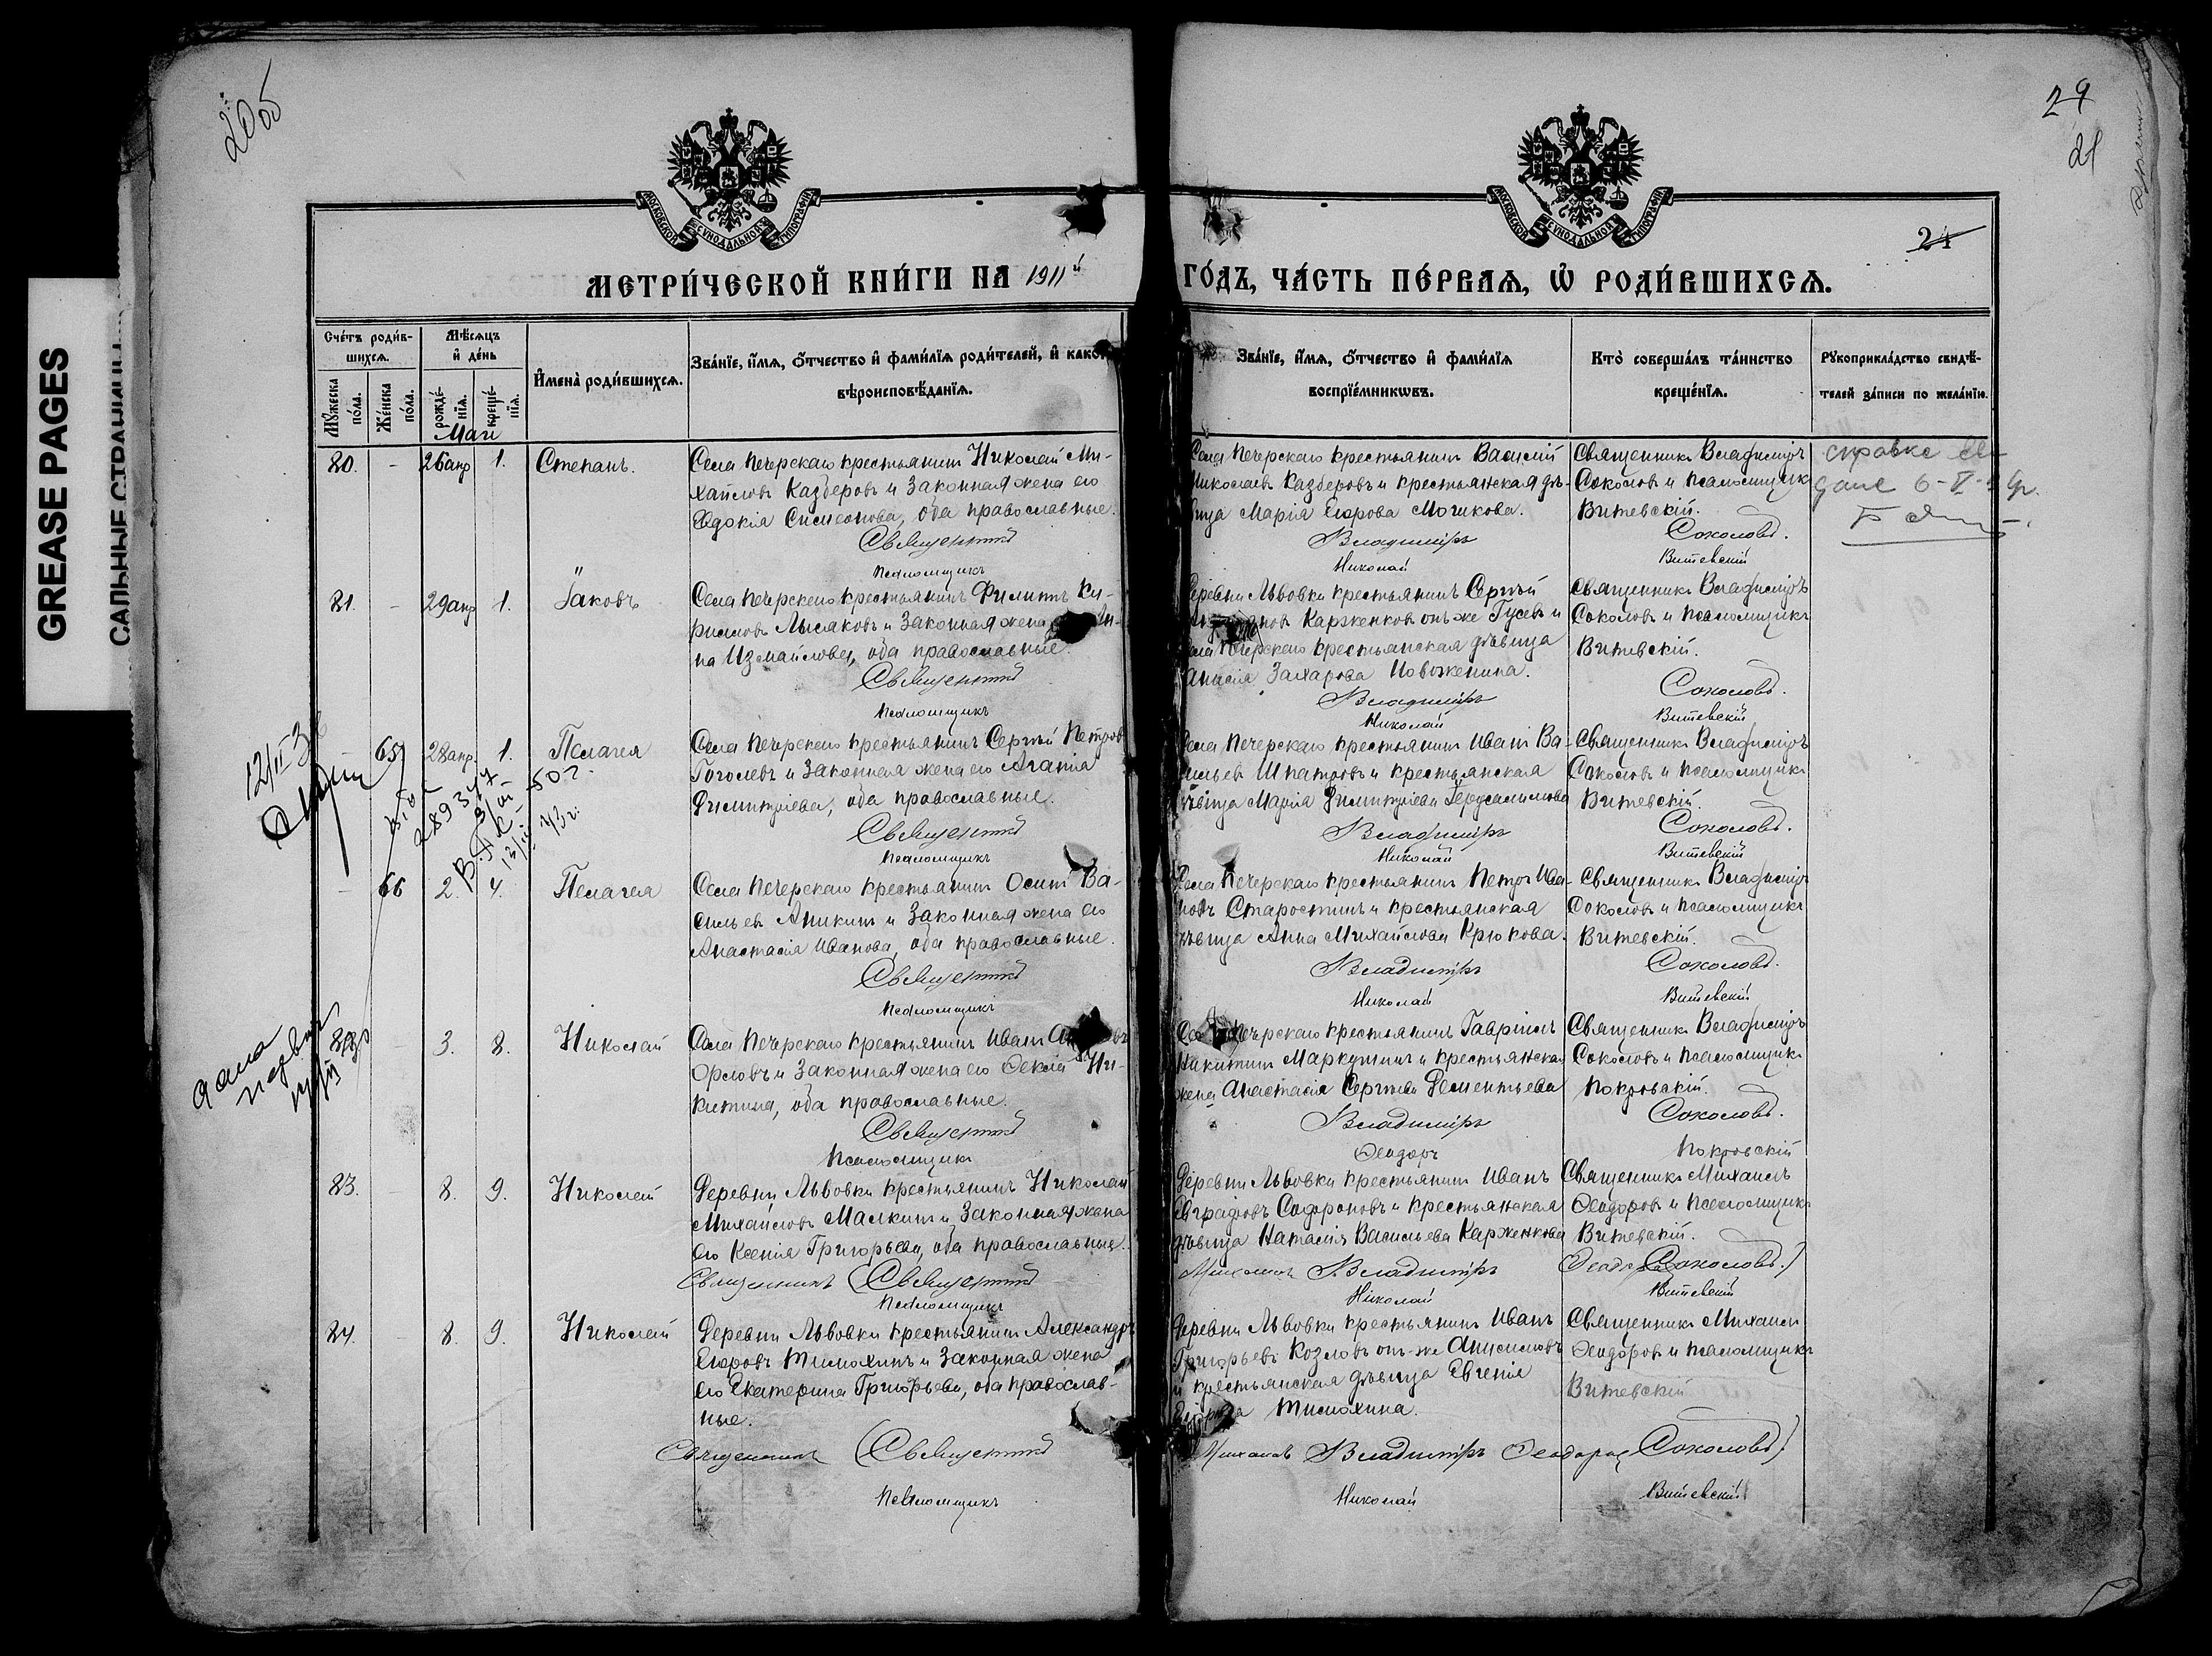 GREASE PAGES
20об
29
21
24
МОСКОВСКОЙ СѴНОДАЛЬНОЙ ТИПОГРАФІИ
МОСКОВСКОЙ СѴНОДАЛЬНОЙ ТИПОГРАФІИ
МЕТРИ́ЧЕСКОЙ КНИ́ГИ НА 1911й
ГО́ДЪ, ЧА́СТЬ ПЕ́РВАѦ, Ѽ РОДИ́ВШИХСѦ.
Сче́тъ роди́в-
шихсѧ.
Мꙋжеска по́ла.
Же́нска по́ла.
Мѣ́сѧцъ
и҆ де́нь
рожде́-
нїѧ.
креще́-
нїѧ.
И҆мена̀ роди́вшихсѧ.
Зва́нїе, и҆́мѧ, ѻ҆́тчество и҆ фами́лїѧ роди́телей, и҆ како́
вѣроисповѣ́данїѧ.
Зва́нїе, и҆́мѧ, ѻ҆́тчество и҆ фами́лїѧ
воспрїе́мникѡвъ.
Кто̀ соверша́лъ та́инство
креще́нїѧ.
Рꙋкоприкла́дство свидѣ́-
телей за́писи по жела́нїю.
Маи
80. - 26апр 1. Степанъ.
Села Печерскаго крестьянинъ Николай Ми-
хайловъ Казберовъ и законная жена его
Евдокія Симеонова, оба православные.
Священникъ
Псаломщикъ
Села Печерскаго крестьянинъ Василій
Николаевъ Казберовъ и крестьянская дѣ-
вица Марія Егорова Мочикова.
Владиміръ
Николай
Священникъ Владиміръ
Соколовъ и псаломщикъ
Витевскій.
Соколовъ.
Витевскій
справка
дана 6-V-
81. - 29апр 1. Іаковъ
Села Печерскаго крестьянинъ Филиппъ Ки-
рилловъ Лысяковъ и законная жена
на Измайлова, оба православные.
Священникъ
Псаломщикъ
Деревни Львовки крестьянинъ Сергѣй
новъ Карженковъ онъ же Гусевъ и
села Печерскаго крестьянская дѣвица
Анисія Захарова Новоженина.
Владиміръ
Николай
Священникъ Владиміръ
Соколовъ и псаломщикъ
Витевскій.
Соколовъ.
Витевскій
12/II
- 65 28апр. 1. Пелагея
Села Печерскаго крестьянинъ Сергѣй Петровъ
Гоголевъ и законная жена его Агапія
Димитріева, оба православные.
Священникъ
Псаломщикъ
Села Печерскаго крестьянинъ Иванъ Ва-
сильевъ Шпатровъ и крестьянская
дѣвица Марія Димитріева Іерусалимова
Владиміръ
Николай
Священникъ Владиміръ
Соколовъ и псаломщикъ
Витевскій.
Соколовъ.
Витевскій
- 66 2. 4. Пелагея
Села Печерскаго крестьянинъ Осипъ Ва-
сильевъ Аникинъ и законная жена его
Анастасія Иванова, оба православные.
Священникъ
Псаломщикъ
Села Печерскаго крестьянинъ Петръ Ива-
новъ Старостинъ и крестьянская
дѣвица Анна Михайлова Крюкова.
Владиміръ
Николай
Священникъ Владиміръ
Соколовъ и псаломщикъ
Витевскій.
Соколовъ.
Витевскій
82. - 3. 8. Николай
Села Печерскаго крестьянинъ Иванъ
Орловъ и законная жена его Ѳекла Ни-
китина, оба православные.
Священникъ
Псаломщикъ
Села Печерскаго крестьянинъ Гавріилъ
Никитинъ Маркушинъ и крестьянская
жена Анастасія Сергѣева Дементьева
Владиміръ
Ѳеодоръ
Священникъ Владиміръ
Соколовъ и псаломщикъ
Покровскій.
Соколовъ.
Покровскій
83. - 8. 9. Николай
Деревни Львовки крестьянинъ Николай
Михайловъ Малкинъ и законная жена
его Ксенія Григорьева, оба православные.
Священникъ (Священникъ
Псаломщикъ
Деревни Львовки крестьянинъ Иванъ
Евграфовъ Сафроновъ и крестьянская
дѣвица Наталія Васильева Карженкова
Михаилъ Владиміръ
Николай
Священникъ Михаилъ
Ѳеодоровъ и псаломщикъ
Витевскій.
Ѳеодоровъ Соколовъ.)
Витевскій
84. - 8. 9. Николай
Деревни Львовки крестьянинъ Александръ
Егоровъ Тимохинъ и законная жена
его Екатерина Григорьева, оба православ-
ные.
Священникъ (Священникъ
Псаломщикъ
Деревни Львовки крестьянинъ Иванъ
Григорьевъ Козловъ онъ-же Анисимовъ
и крестьянская дѣвица Евгенія
Егорова Тимохина.
Михаилъ Владиміръ
Николай
Священникъ Михаилъ
Ѳеодоровъ и псаломщикъ
Витевскій
Ѳеодоровъ Соколовъ)
Витевскій